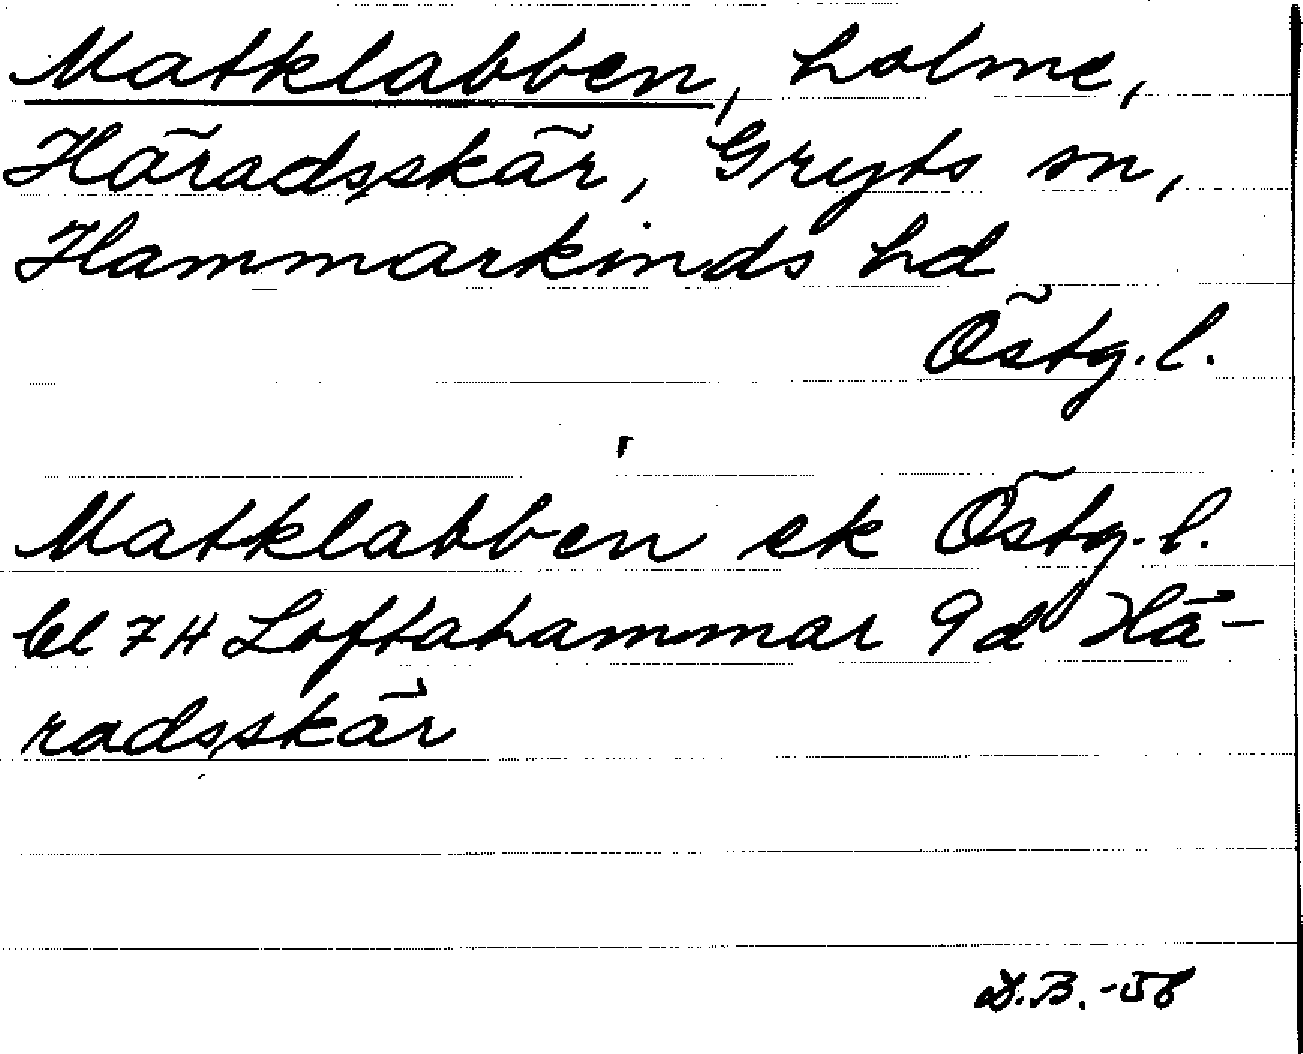 Matklabben, holme,
Häradsskär, Gryts sn,
Hammarkinds hd
Östg.l.
Matklabben ek Östg.l.
bl 7H Loftahammar 9d Hä-
radsskär
D.B.-58